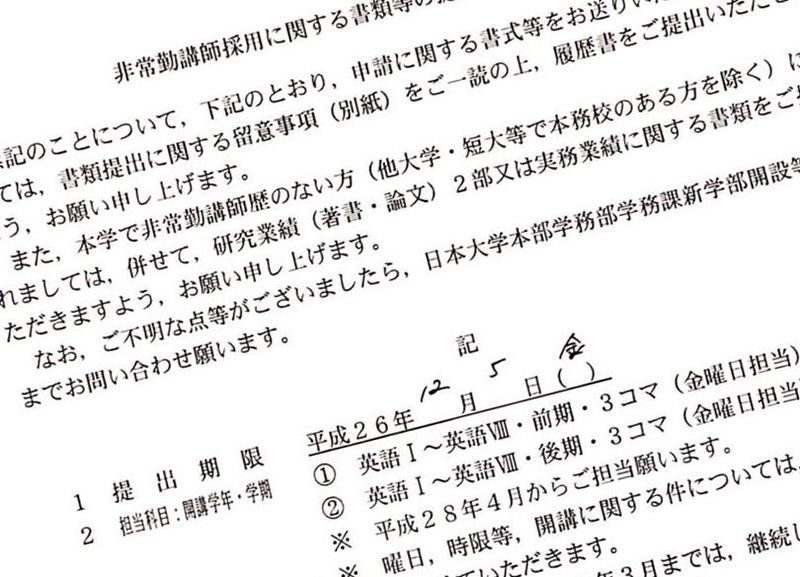 非常勤講師採用に関する書類等の
記のことについて，下記のとおり，申請に関する書式等をお送りいた
ては，書類提出に関する留意事項（別紙）をご一読の上，履歴書をご提出いただき
う，お願い申し上げます。
また，本学で非常勤講師歴のない方（他大学・短大等で本務校のある方を除く）に
れましては，併せて，研究業績（著書・論文）２部又は実務業績に関する書類をご
ただきますよう，お願い申し上げます。
なお，ご不明な点等がございましたら，日本大学本部学務部学務課新学部開設等
までお問い合わせ願います。
記
１ 提出期限 平成２６年 12 月 5 日（金）
２ 担当科目：開講学年・学期 ① 英語Ⅰ～英語Ⅷ・前期・３コマ（金曜日担当）
② 英語Ⅰ～英語Ⅷ・後期・３コマ（金曜日担当
※ 平成２８年４月からご担当願います。
※ 曜日，時限等，開講に関する件については
ていただきます。
年３月までは，継続し